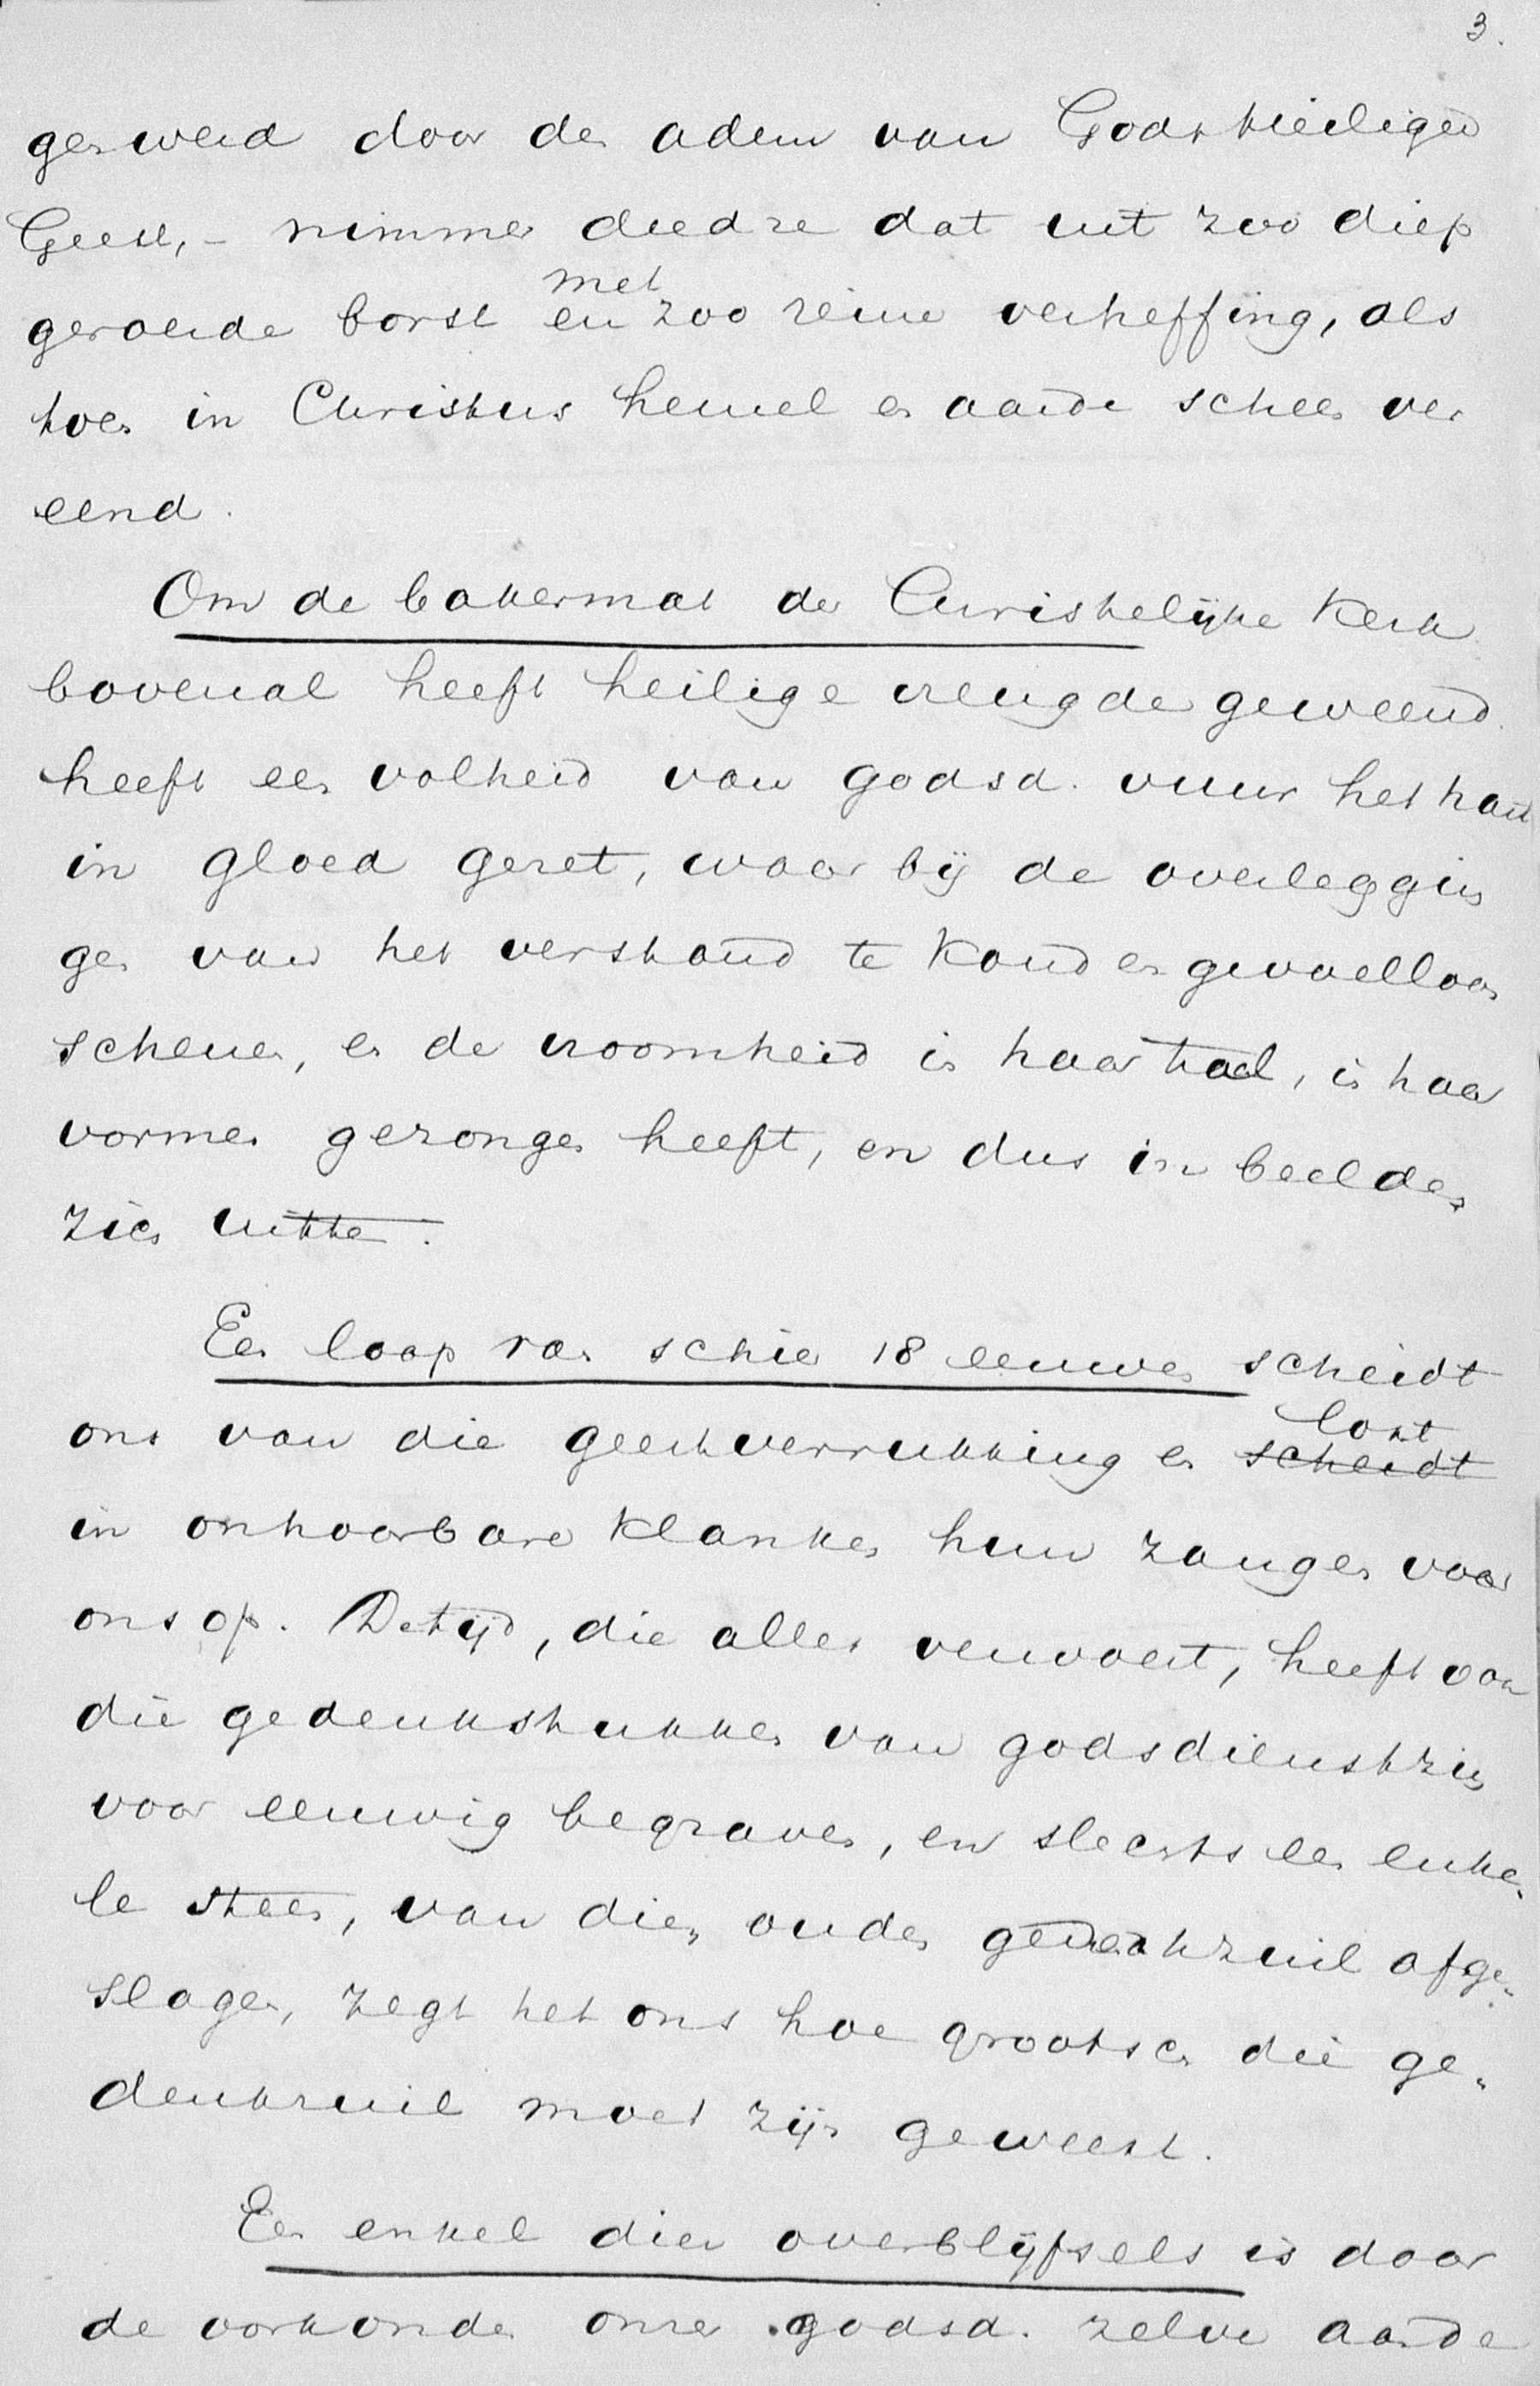 3.
gewend door den adem van Gods heiligen
Geest, - nimmer deed ze dat uit zoo diep
geroerde borst en met zoo reine verheffing, als
toen in Christus hemel en aarde scheen ver
eend.
Om de bakermat der Christelijke Kerk
bovenal heeft heilige vreugde geweend
heeft een volheid van godsd. vuur het hart
in gloed gezet, waarbij de overleggin
gen van het verstand te koud en gevoelloos
schenen, en de vroomheid in haar taal, in haar
vormen gezongen heeft, en dus in beelden
zich uitte.
Een loop van schier 18 eeuwen scheidt
ons van die geestverrukking en lost
scheidt
in onhoorbare klanken hun zangen voor
ons op. De tijd, die alles vervoert, heeft ook
die gedenkstukken van godsdienstzin
voor eeuwig begraven, en slechts een enke-
le steen, van dien ouden gedenkzuil afge-
slagen, zegt het ons hoe grootsch die ge-
denkzuil moet zijn geweest.
Een enkel dier overblijfsels is door
de oorkonden onzer godsd. zelve aan de